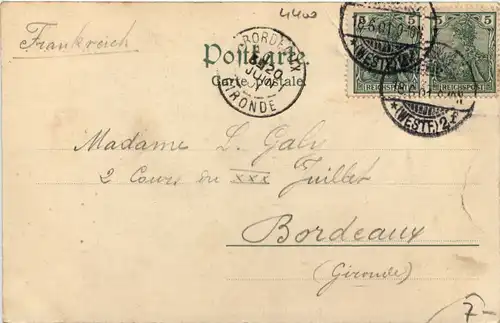 4400
Frankreich
Postkarte.
Carte postale.
BORDEAUX
20
JUIN
GIRONDE
5 5 5
REICHSPOST REICHSPOST
*(WESTF.)
*(WESTF.) 2
Madame L. Galy
2 Cours du XXX Juillet
Bordeaux
(Gironde)
7-